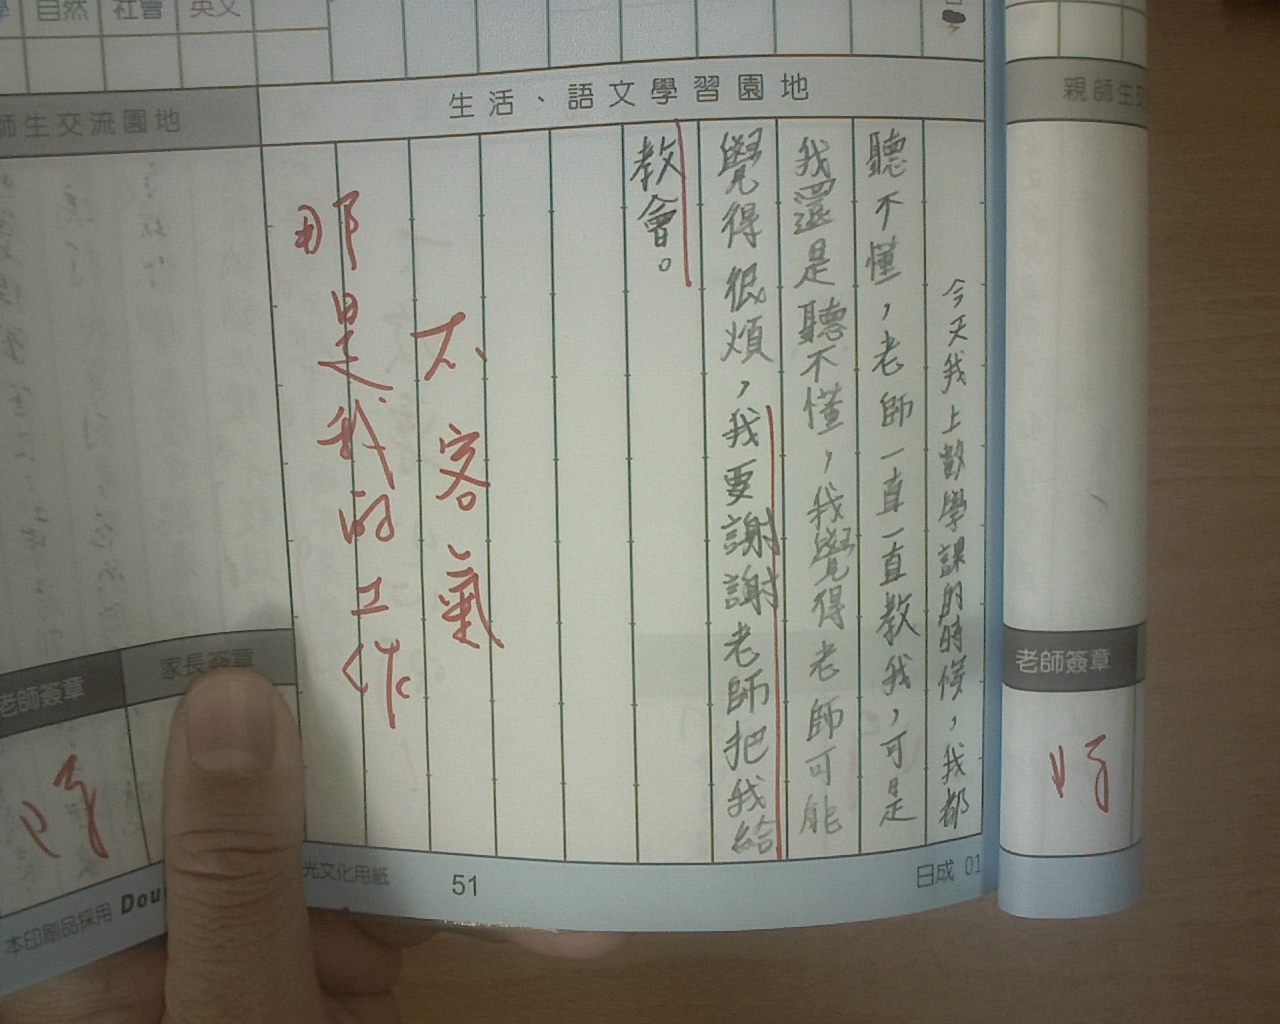 自然 社會 英文
生活、語文學習園地
今天我上數學課的時候，我都
聽不懂，老師一直一直教我，可是
我還是聽不懂，我覺得老師可能
覺得很煩，我要謝謝老師把我給
教會。
不客氣
那是我的工作
師生交流園地
老師簽章
家長簽章
光文化用紙
51
日成 01
本印刷品採用 Dou
親師生交
老師簽章